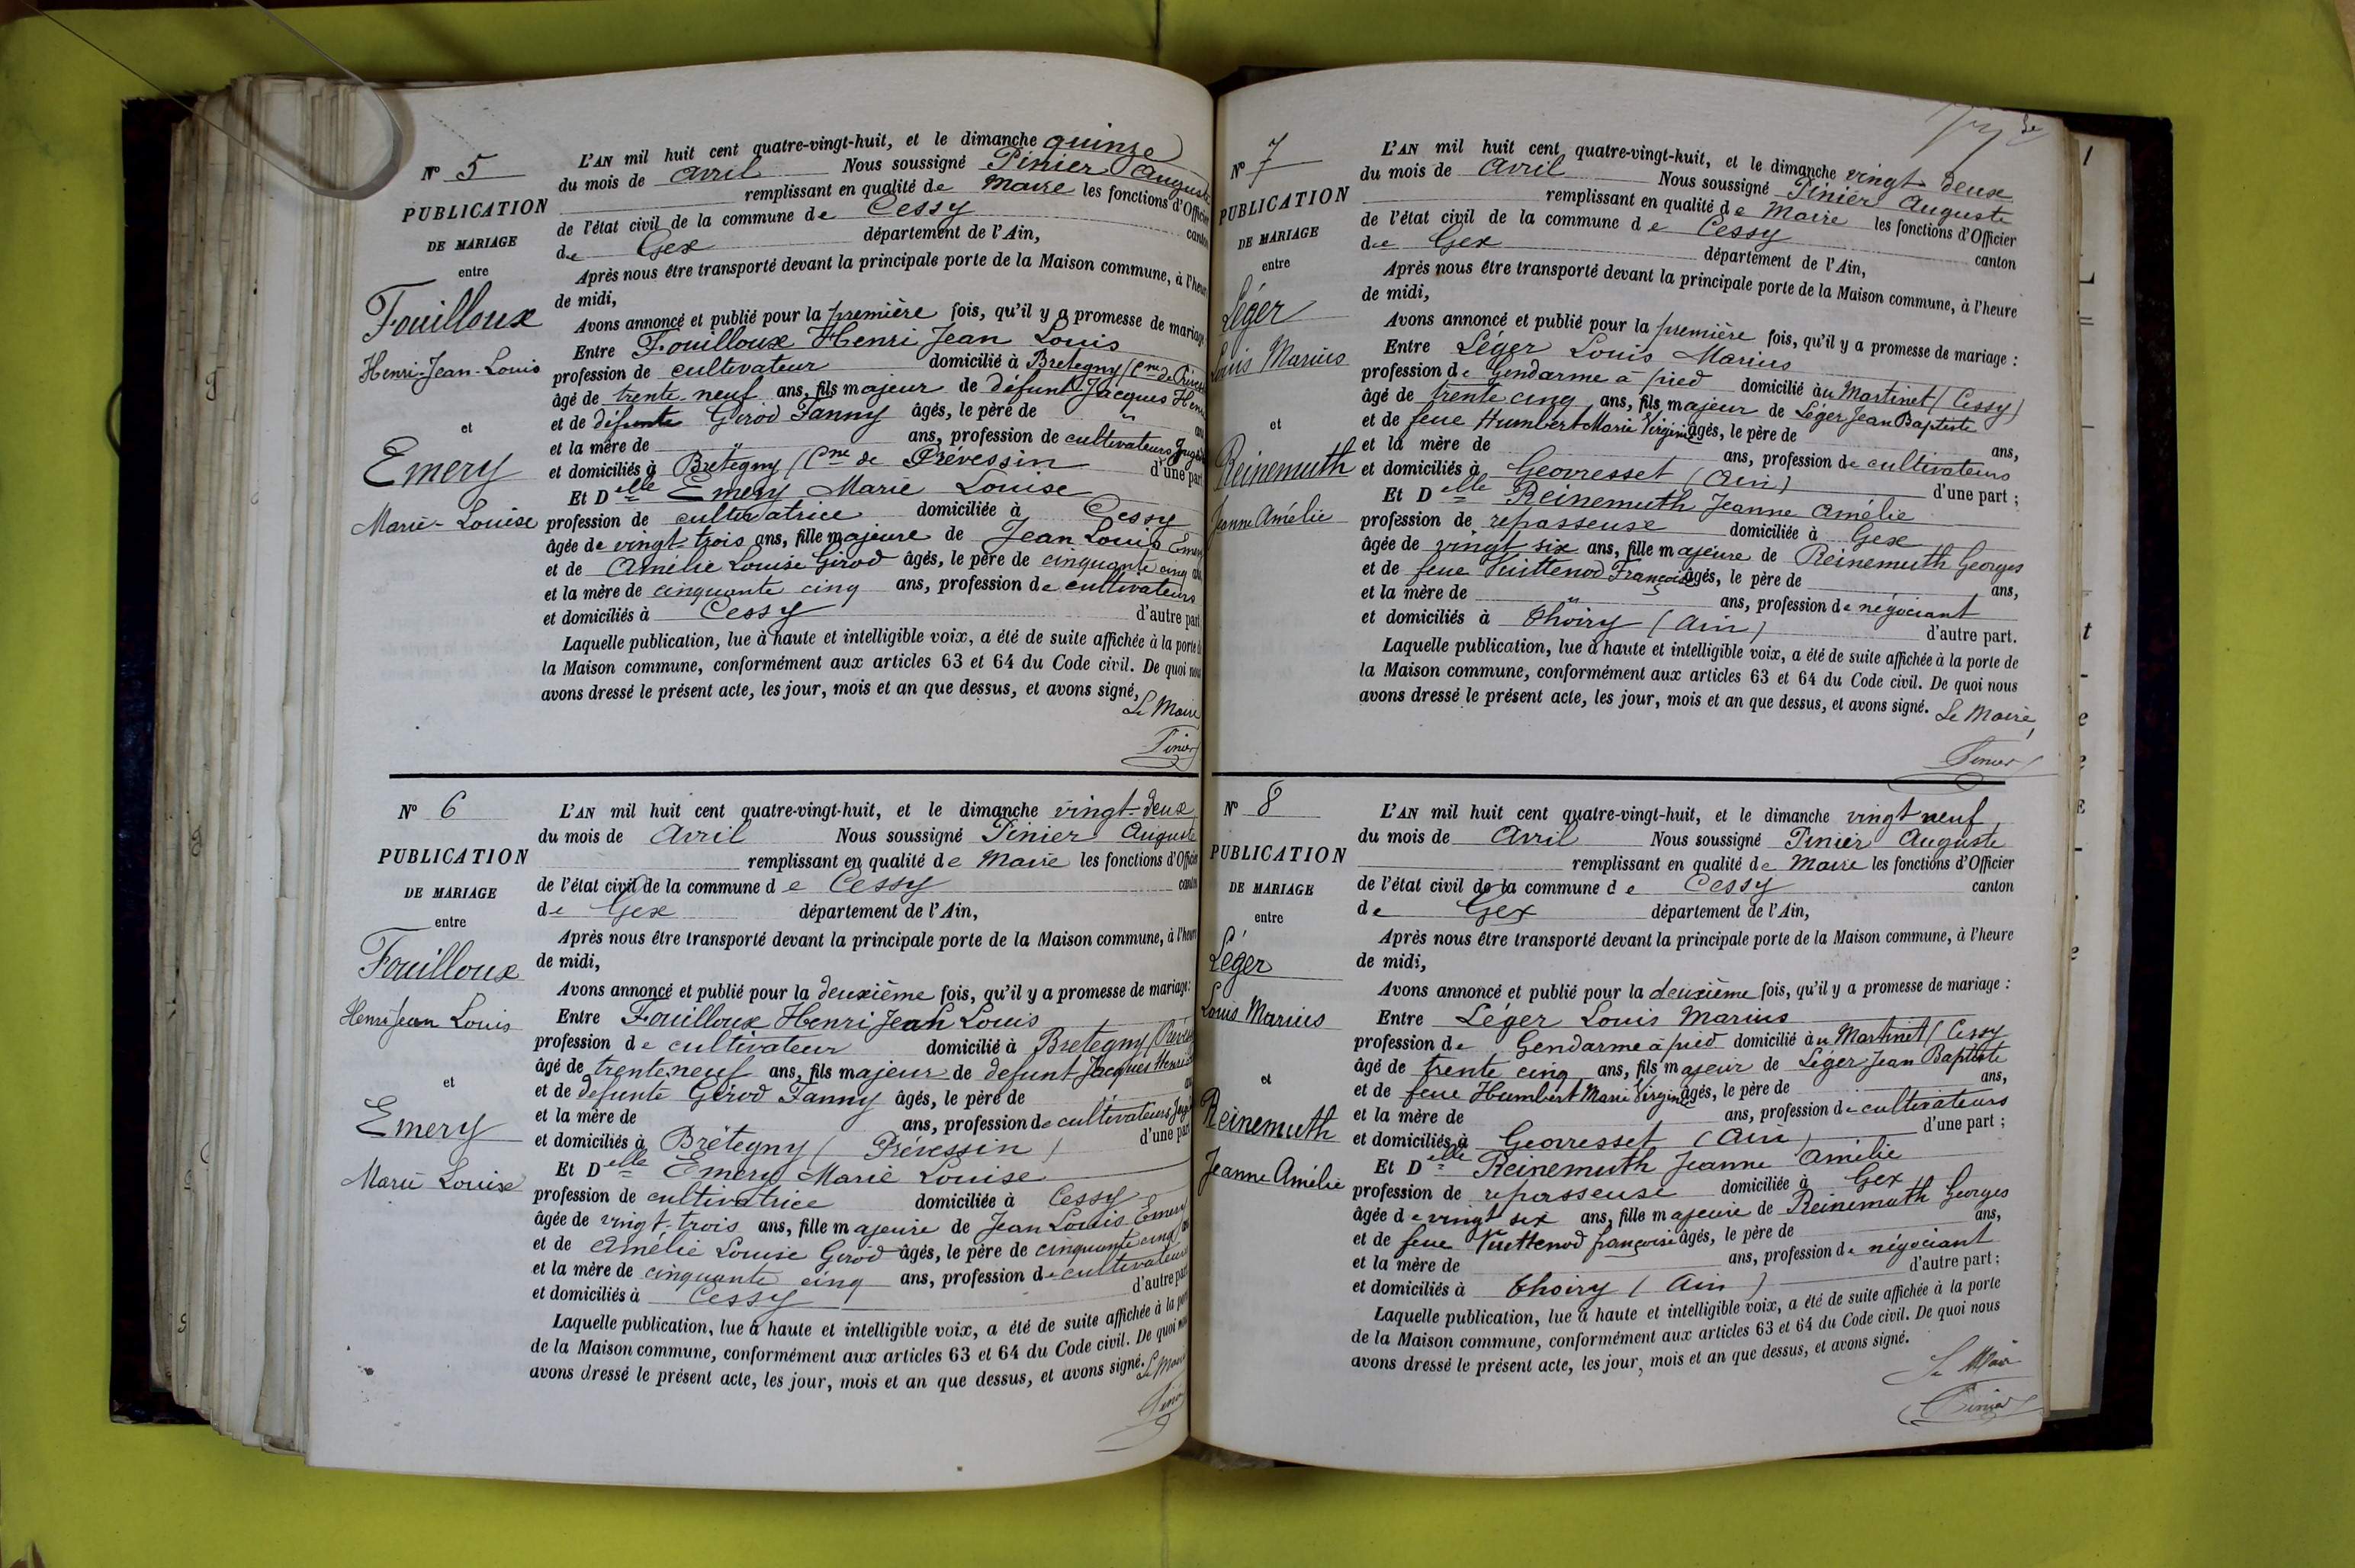 N° 5
PUBLICATION
DE MARIAGE
entre
Fouilloux
Henri-Jean-Louis
et
Emery
Marie-Louise
L'AN mil huit cent quatre-vingt-huit, et le dimanche quinze
du mois de Avril Nous soussigné Pinier Auguste
remplissant en qualité de Maire les fonctions d'Officier
de l'état civil de la commune de Cessy canton
de Gex département de l'Ain,
Après nous être transporté devant la principale porte de la Maison commune, à l'heure
de midi,
Avons annoncé et publié pour la première fois, qu'il y a promesse de mariage
Entre Fouilloux Henri Jean Louis
profession de cultivateur domicilié à Bretegny (Cne de
âgé de trente-neuf ans, fils majeur de défunt Jacques Henri
et de défunte Girod Fanny âgés, le père de "
et la mère de " ans, profession de cultivateurs
et domiciliés à Brétegny (Cne de Prévessin d'une part
Et Delle Emery Marie Louise
profession de cultivatrice domiciliée à Cessy
âgée de vingt-trois ans, fille majeure de Jean Louis Emery
et de Amélie Louise Girod âgés, le père de cinquante cinq ans
et la mère de cinquante cinq ans, profession de cultivateurs
et domiciliés à Cessy d'autre part
Laquelle publication, lue à haute et intelligible voix, a été de suite affichée à la porte de
la Maison commune, conformément aux articles 63 et 64 du Code civil. De quoi nous
avons dressé le présent acte, les jour, mois et an que dessus, et avons signé,
Le Maire
Pinier
N° 6
PUBLICATION
DE MARIAGE
entre
Fouilloux
Henri Jean Louis
et
Emery
Marie Louise
L'AN mil huit cent quatre-vingt-huit, et le dimanche vingt-deux
du mois de Avril Nous soussigné Pinier Auguste
remplissant en qualité de Maire les fonctions d'Officier
de l'état civil de la commune de Cessy canton
de Gex département de l'Ain,
Après nous être transporté devant la principale porte de la Maison commune, à l'heure
de midi,
Avons annoncé et publié pour la deuxième fois, qu'il y a promesse de mariage:
Entre Fouilloux Henri Jean Louis
profession de cultivateur domicilié à Bretegny
âgé de trente-neuf ans, fils majeur de defunt Jacques Henri
et de defunte Girod Fanny âgés, le père de
et la mère de ans, profession de cultivateurs
et domiciliés à Brétegny (Prévessin) d'une part
Et Delle Emery Marie Louise
profession de cultivatrice domiciliée à Cessy
âgée de vingt-trois ans, fille majeure de Jean Louis Emery
et de Amélie Louise Girod âgés, le père de cinquante cinq
et la mère de cinquante cinq ans, profession de cultivateurs
et domiciliés à Cessy d'autre part
Laquelle publication, lue à haute et intelligible voix, a été de suite affichée à la porte
de la Maison commune, conformément aux articles 63 et 64 du Code civil. De quoi nous
avons dressé le présent acte, les jour, mois et an que dessus, et avons signé.
Le Maire
Pinier
N° 7
PUBLICATION
DE MARIAGE
entre
Léger
Louis Marius
et
Reinemuth
Jeanne Amélie
L'AN mil huit cent quatre-vingt-huit, et le dimanche vingt-deux
du mois de Avril Nous soussigné Pinier Auguste
remplissant en qualité de Maire les fonctions d'Officier
de l'état civil de la commune de Cessy canton
de Gex département de l'Ain,
Après nous être transporté devant la principale porte de la Maison commune, à l'heure
de midi,
Avons annoncé et publié pour la première fois, qu'il y a promesse de mariage :
Entre Léger Louis Marius
profession de Gendarme à pied domicilié àu Martinet (Cessy)
âgé de trente cinq ans, fils majeur de Léger Jean Baptiste
et de feue Humbert Marie Virginie âgés, le père de ans,
et la mère de ans, profession de cultivateurs
et domiciliés à Geovresset (Ain) d'une part ;
Et Delle Reinemuth Jeanne Amélie
profession de repasseuse domiciliée à Gex
âgée de vingt six ans, fille majeure de Reinemuth Georges
et de feue Vuittenod Françoise âgés, le père de ans,
et la mère de " ans, profession de négociant
et domiciliés à Thoiry (Ain) d'autre part.
Laquelle publication, lue à haute et intelligible voix, a été de suite affichée à la porte de
la Maison commune, conformément aux articles 63 et 64 du Code civil. De quoi nous
avons dressé le présent acte, les jour, mois et an que dessus, et avons signé.
Le Maire,
Pinier
N° 8
PUBLICATION
DE MARIAGE
entre
Léger
Louis Marius
et
Reinemuth
Jeanne Amélie
L'AN mil huit cent quatre-vingt-huit, et le dimanche vingt neuf
du mois de Avril Nous soussigné Pinier Auguste
remplissant en qualité de Maire les fonctions d'Officier
de l'état civil de la commune de Cessy canton
de Gex département de l'Ain,
Après nous être transporté devant la principale porte de la Maison commune, à l'heure
de midi,
Avons annoncé et publié pour la deuxième fois, qu'il y a promesse de mariage :
Entre Léger Louis Marius
profession de Gendarme à pied domicilié àu Martinet (Cessy
âgé de trente cinq ans, fils majeur de Léger Jean Baptiste
et de feue Humbert Marie Virginie âgés, le père de ans,
et la mère de ans, profession de cultivateurs
et domiciliés à Geovresset (Ain) d'une part ;
Et Delle Reinemuth Jeanne Amélie
profession de repasseuse domiciliée à Gex
âgée de vingt six ans, fille majeure de Reinemuth Georges
et de feue Vuittenod françoise âgés, le père de ans,
et la mère de ans, profession de négociant
et domiciliés à Thoiry (Ain) d'autre part ;
Laquelle publication, lue à haute et intelligible voix, a été de suite affichée à la porte
de la Maison commune, conformément aux articles 63 et 64 du Code civil. De quoi nous
avons dressé le présent acte, les jour, mois et an que dessus, et avons signé.
Le Maire
Pinier